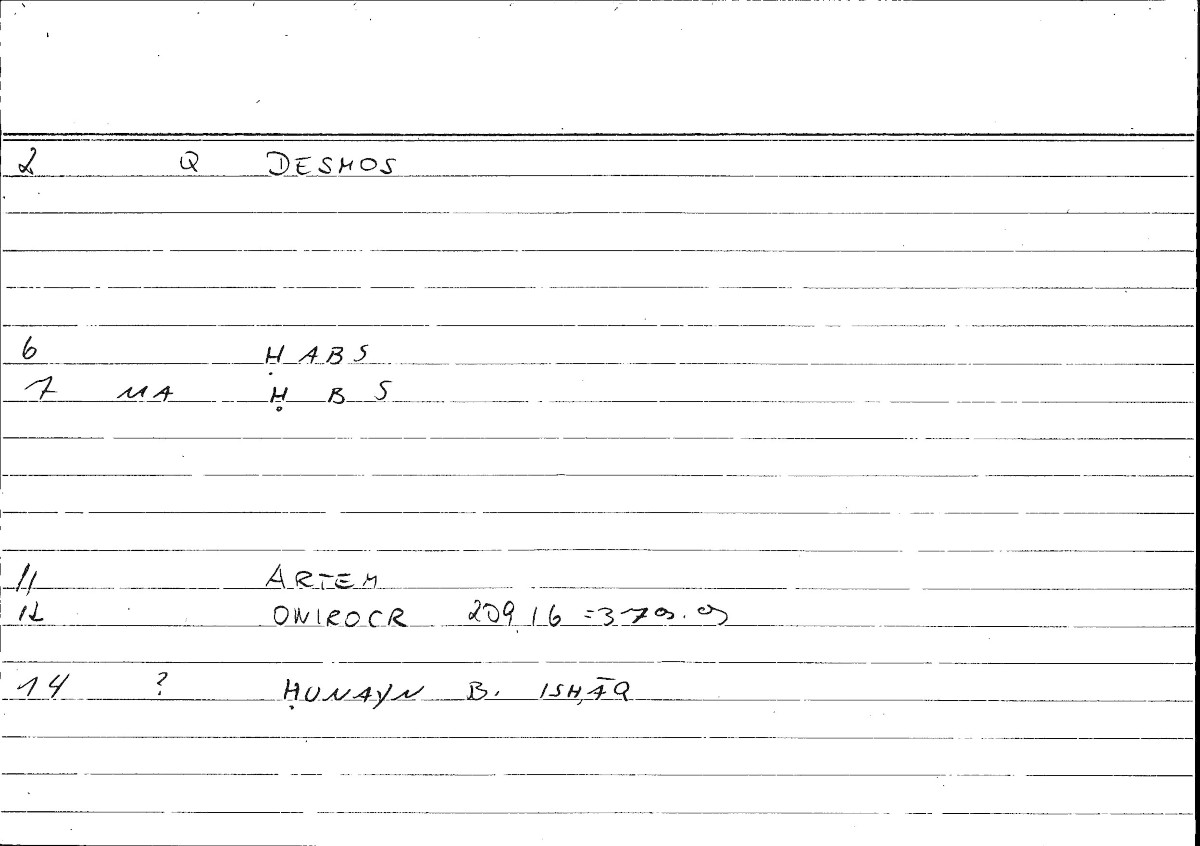 2 Q DESMOS
6 ḤABS
7 MA Ḥ B S
11 ARTEM
12 ONIROCR 209,16 = 379.9
14 ? ḤUNAYN B. ISḤĀQ